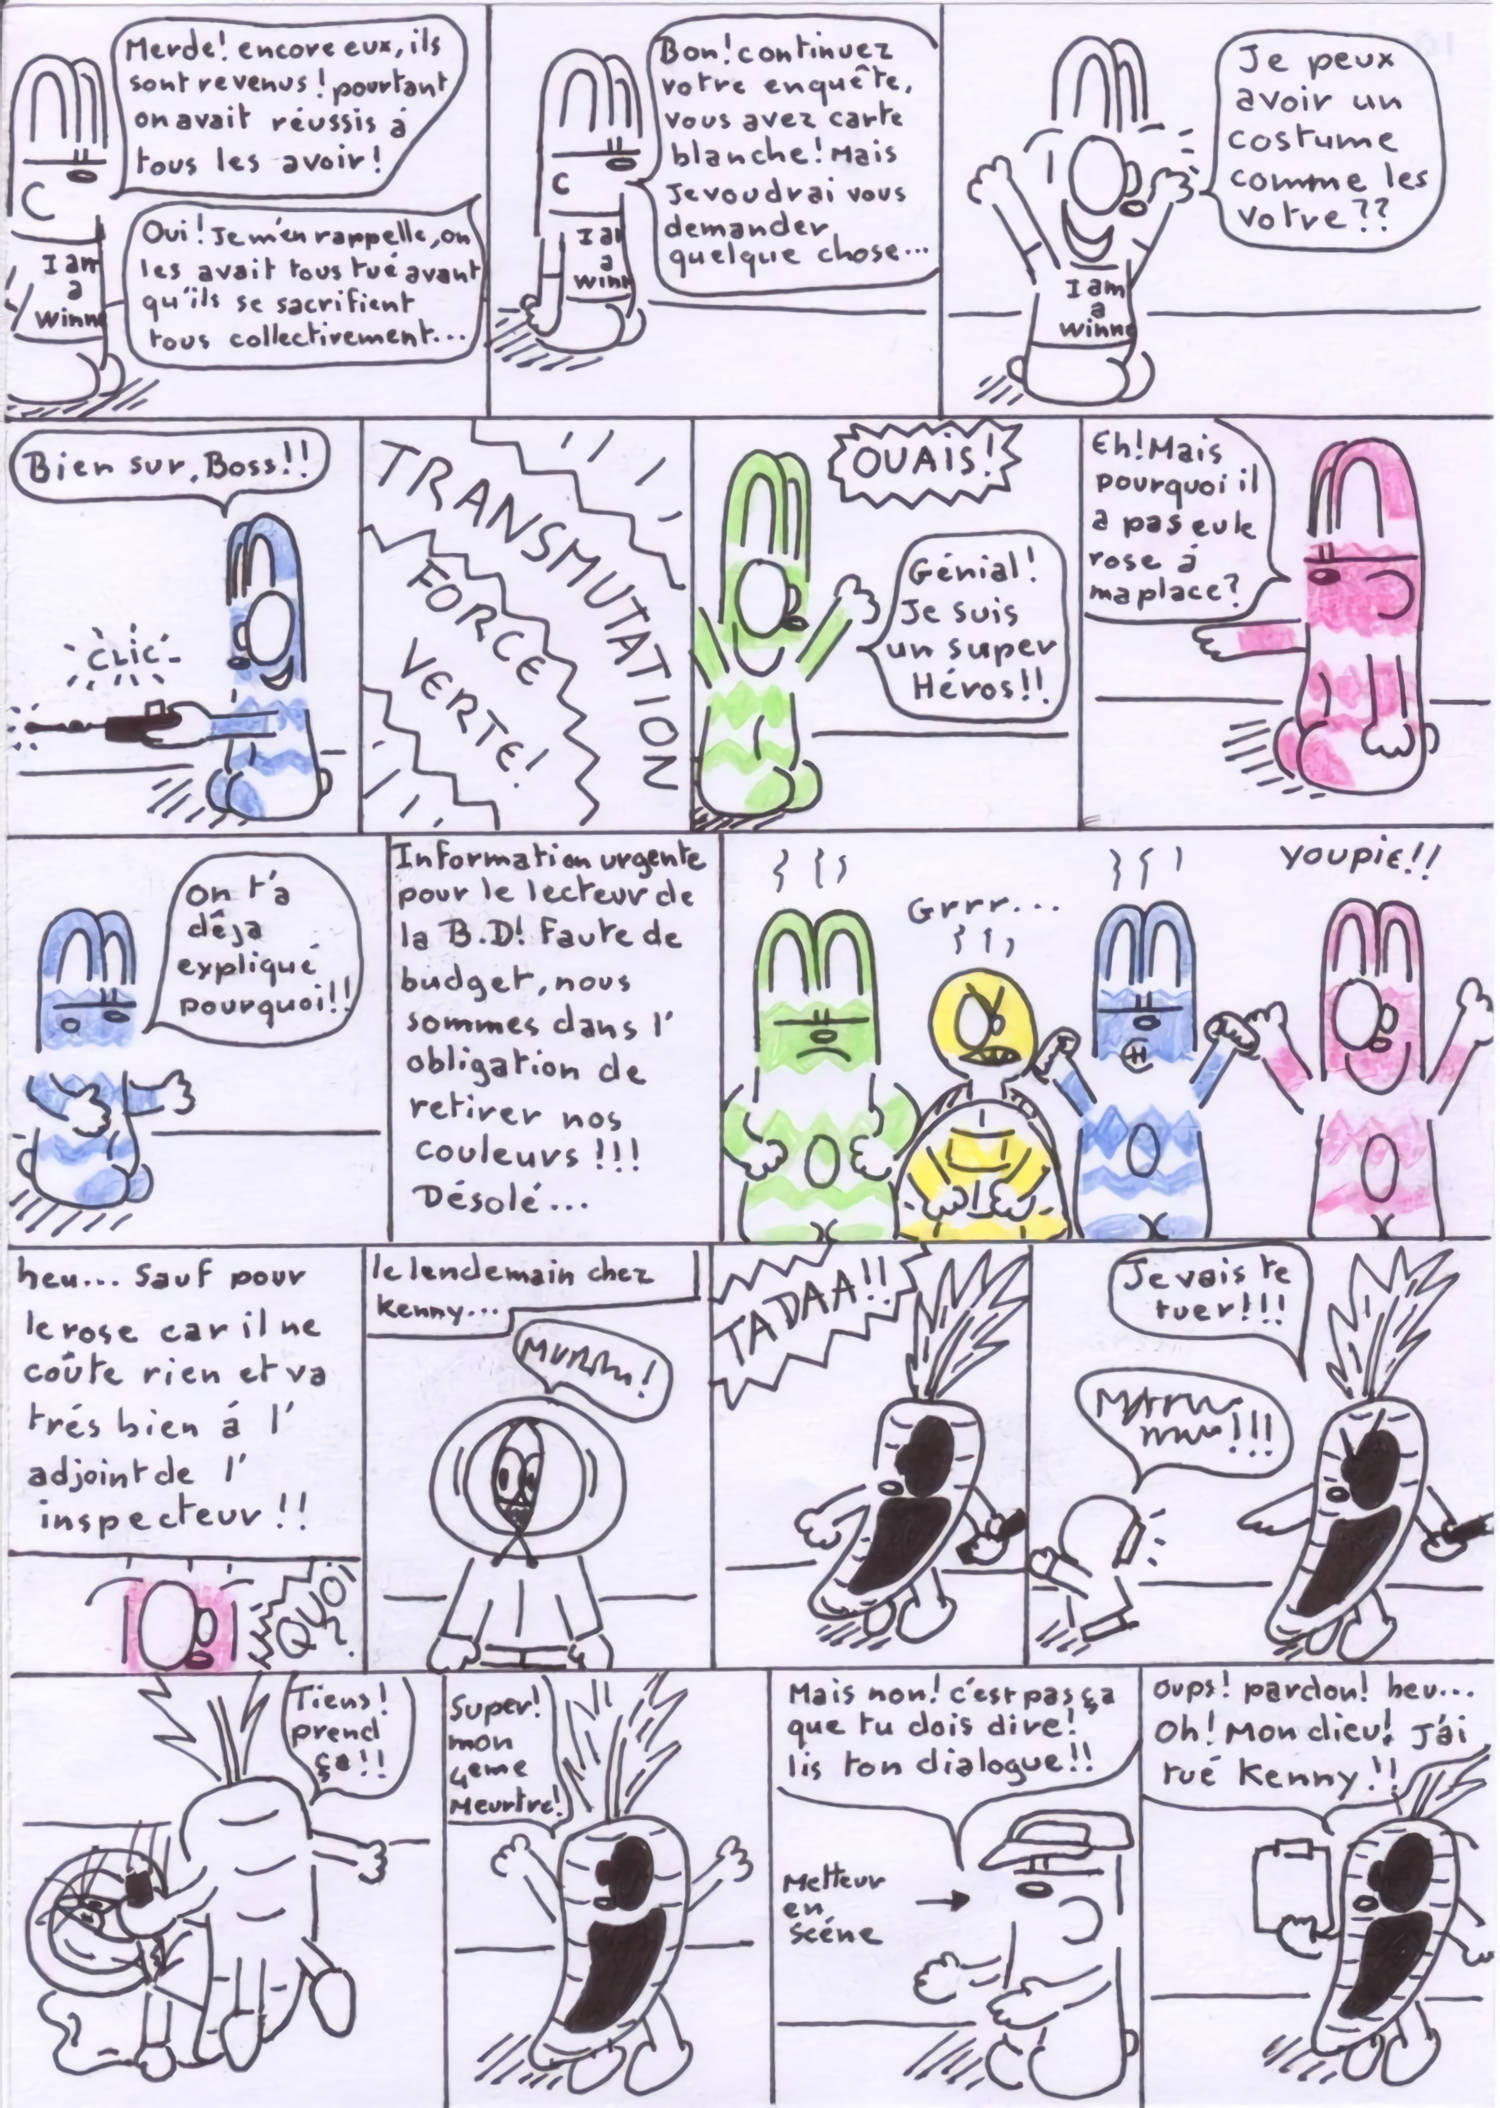 Merde! encore eux, ils
sont revenus! pourtant
on avait réussis à
tous les avoir!
Oui! Je m'en rappelle, on
les avait tous tué avant
qu'ils se sacrifient
tous collectivement...
I am
a
Winn
Bon! continuez
votre enquête,
vous avez carte
blanche! Mais
Je voudrai vous
demander
quelque chose...
I am
a
Winn
Je peux
avoir un
costume
comme les
votre??
I am
a
Winn
Bien sur, Boss!!
CLIC
TRANSMUTATION
FORCE
VERTE!
OUAIS!
Génial!
Je suis
un super
Héros!!
Eh! Mais
pourquoi il
a pas eu le
rose à
ma place?
On t'a
dêja
expliqué
pourquoi!!
Information urgente
pour le lecteur de
la B.D! Faute de
budget, nous
sommes dans l'
obligation de
retirer nos
couleurs!!!
Désolé...
Grrr...
YOUPIE!!
heu... Sauf pour
le rose car il ne
coûte rien et va
trés bien á l'
adjoint de l'
inspecteur!!
QUOI
?
le lendemain chez
Kenny...
TADAA!!
Je vais te
tuer!!!
Tiens!
prend
ça!!
Super!
mon
4eme
Meurtre!
Mais non! c'est pas ça
que tu dois dire!
lis ton dialogue!!
Metteur
en
scéne
Oups! pardon! heu...
Oh! Mon dieu! J'ai
tué Kenny!!